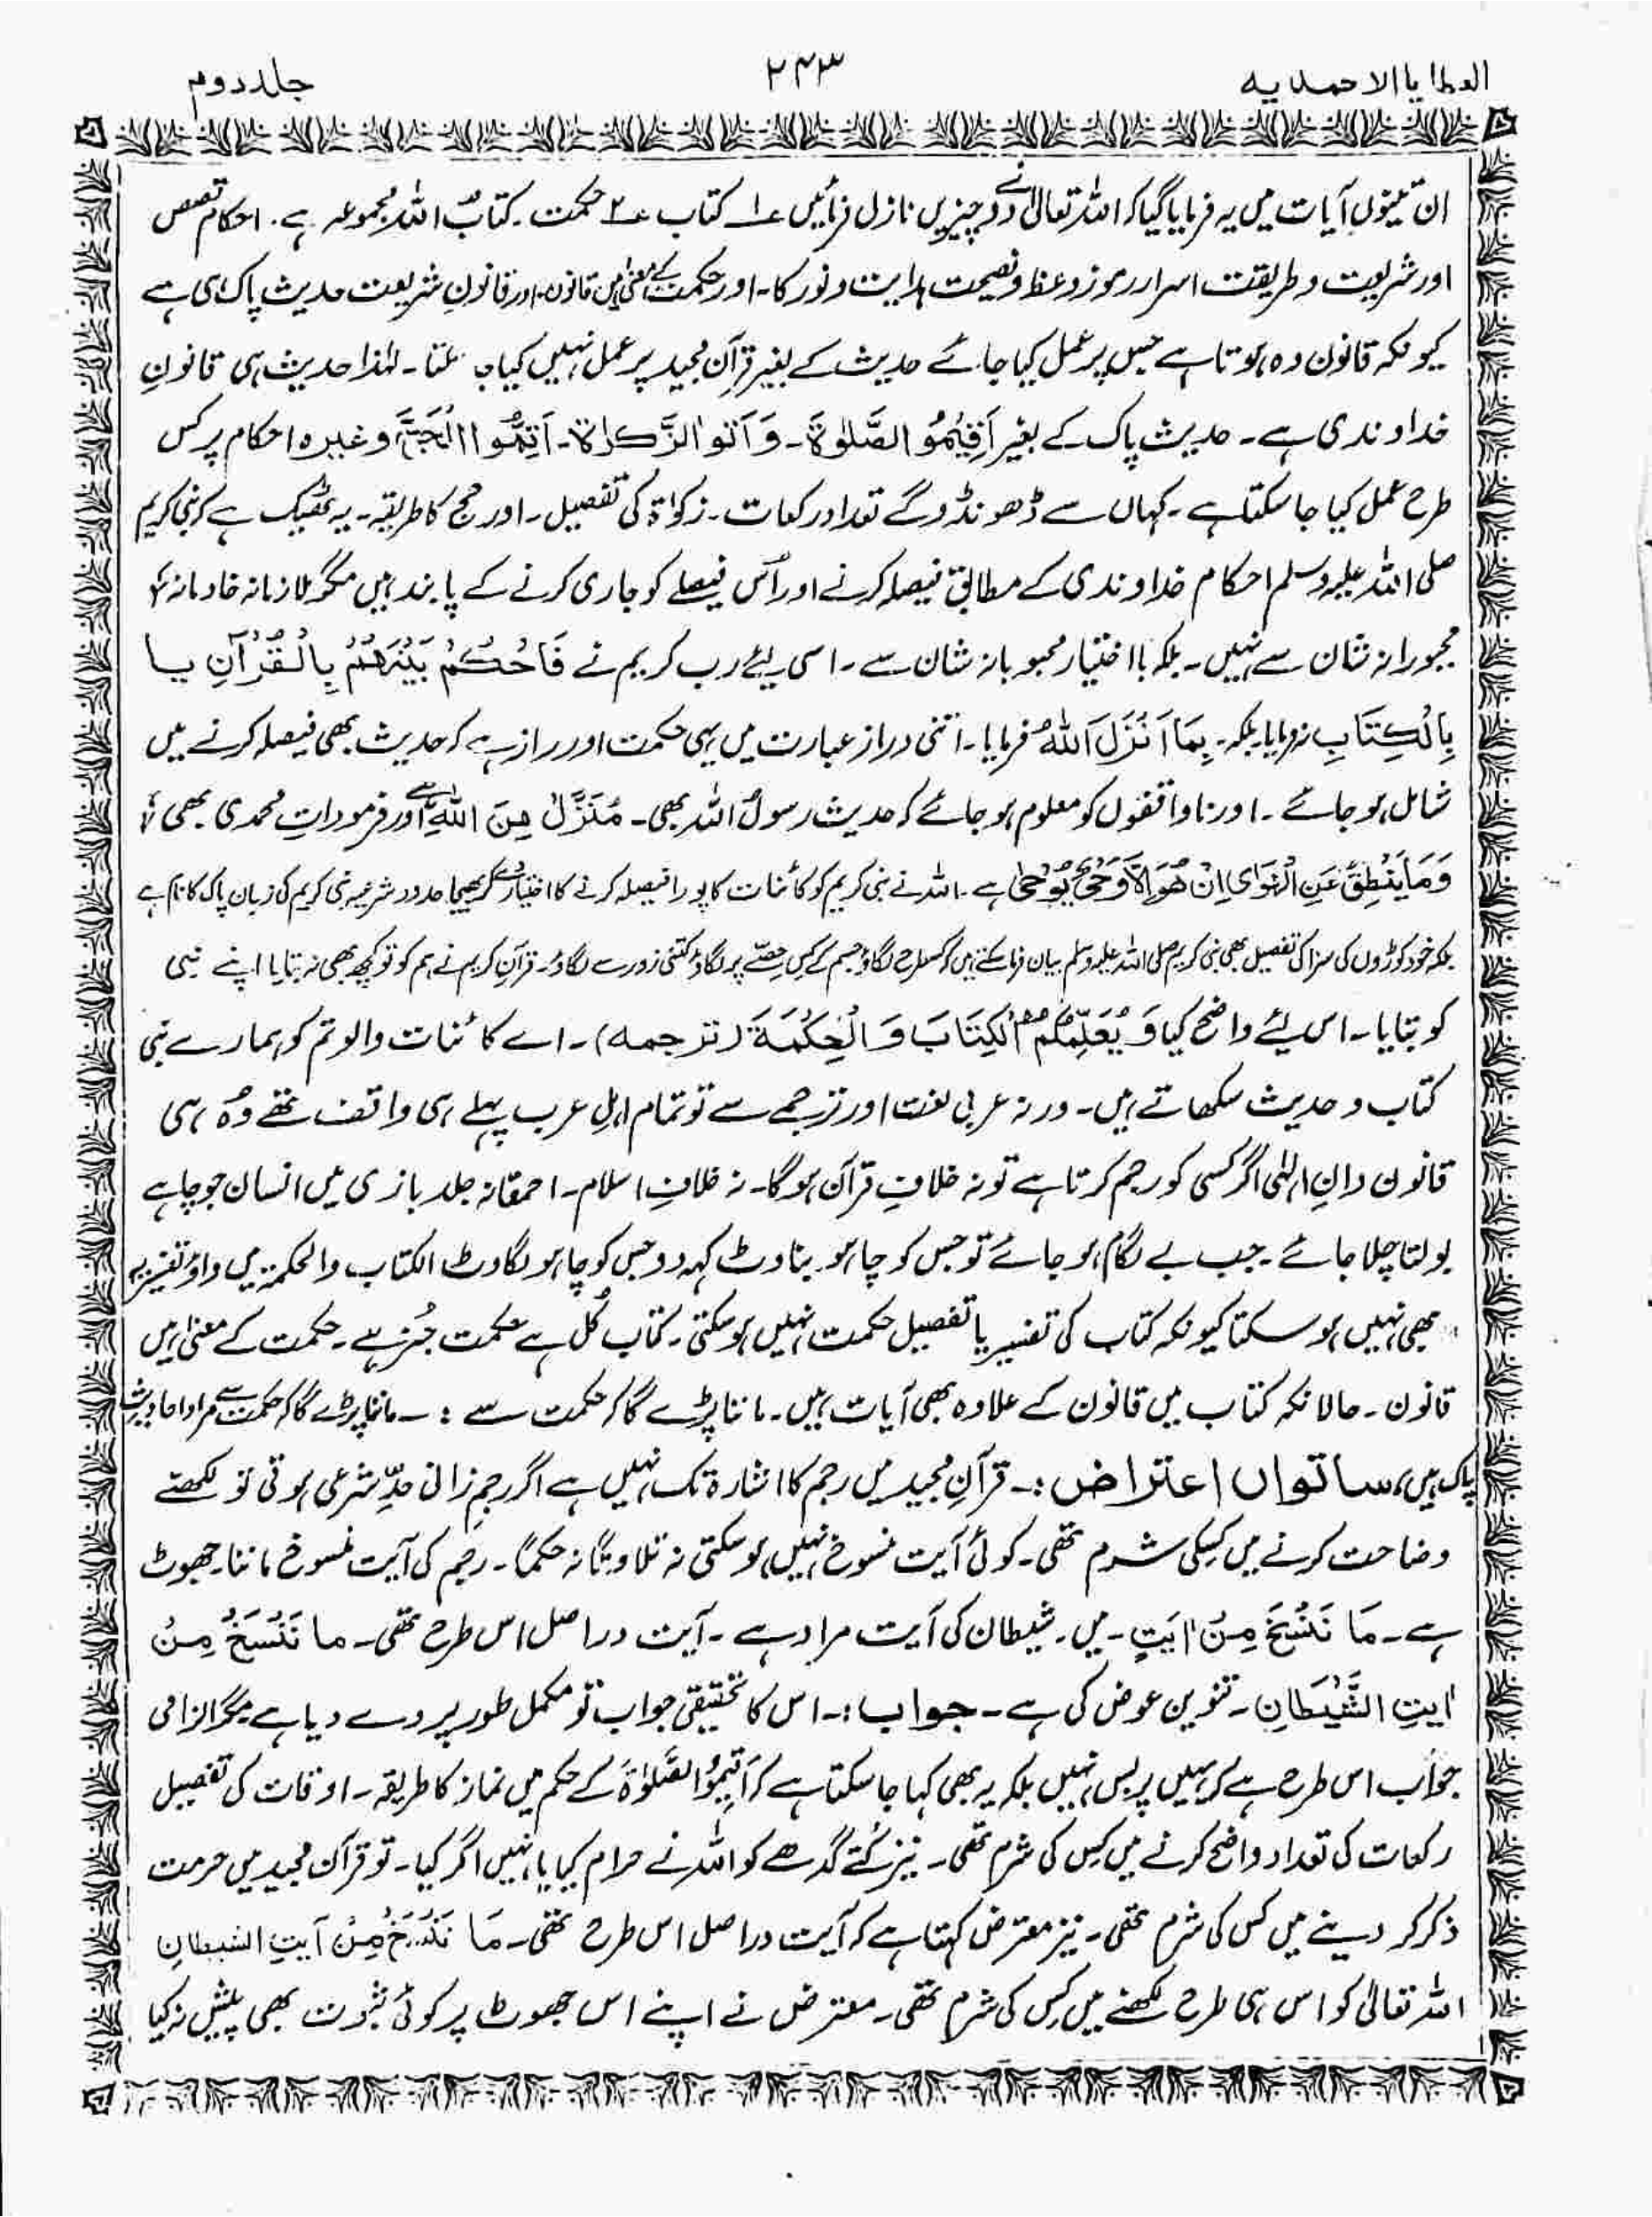 العطایا الاحمدیہ
۲۴۳
جلد دوم
ان تینوں آیات میں یہ فرمایا گیا کہ اللہ تعالیٰ نے دو چیزیں نازل فرمائیں ۱؎ کتاب ۲؎ حکمت۔ کتاب اللہ مجموعہ ہے۔ احکام قصص
اور شریعت و طریقت اسرار رموز و عظ و نصیحت ہدایت و نور کا۔ اور حکمت کے معنیٰ ہیں قانون۔ اور قانونِ شریعت حدیث پاک ہی ہے
کیونکہ قانون وہ ہوتا ہے جس پر عمل کیا جائے حدیث کے بغیر قرآن مجید پر عمل نہیں کیا جا سکتا۔ لہٰذا حدیث ہی قانونِ
خداوندی ہے۔ حدیث پاک کے بغیر اَقِیْمُو الصَّلٰوۃَ۔ وَ اٰتُو الزَّکوٰۃ۔ اَتِمُّوا الْحَجَّ وغیرہ احکام پر کس
طرح عمل کیا جا سکتا ہے۔ کہاں سے ڈھونڈو گے تعداد رکعات۔ زکوٰۃ کی تفصیل۔ اور حج کا طریقہ۔ یہ ٹھیک ہے کہ نبی کریم
صلی اللہ علیہ وسلم احکام خداوندی کے مطابق فیصلہ کرنے اور اُس فیصلے کو جاری کرنے کے پابند ہیں مگر ملازمانہ خادمانہ
مجبورانہ شان سے نہیں۔ بلکہ با اختیار محبوبانہ شان سے۔ اسی لیئے رب کریم نے فَاحْکُمْ بَیْنَہُمْ بِالْقُرْآنِ یا
بِالْکِتَابِ نہ فرمایا بلکہ۔ بِمَا اَنْزَلَ اللّٰہُ فرمایا۔ اتنی دراز عبارت میں یہی حکمت اور راز ہے کہ حدیث بھی فیصلہ کرنے میں
شامل ہو جائے۔ اور ناواقفوں کو معلوم ہو جائے کہ حدیث رسول اللہ بھی۔ مُنَزَّلٌ مِنَ اللّٰہِ ہے اور فرموداتِ محمدی بھی
وَمَا یَنْطِقُ عَنِ الْہَوَای اِنْ ھُوَ اِلَّا وَحْیٌ یُّوْحیٰ ہے۔ اللہ نے نبی کریم کو کائنات کا پورا فیصلہ کرنے کا اختیار دے کر بھیجا حدود شرعیہ نبی کریم کی زبان پاک کا نام ہے
بلکہ خود کوڑوں کی سزا کی تفصیل بھی نبی کریم صلی اللہ علیہ وسلم بیان فرما سکتے ہیں کہ کس طرح لگاؤ جسم کے کس حصّے پر لگاؤ کتنی زور سے لگاؤ۔ قرآن کریم نے ہم کو تو کچھ بھی نہ بتایا اپنے نبی
کو بتایا۔ اس لیئے واضح کیا وَ یُعَلِّمُکُمُ الْکِتَابَ وَ الْحِکْمَۃَ (ترجمہ)۔ اے کائنات والو تم کو ہمارے نبی
کتاب و حدیث سکھاتے ہیں۔ ورنہ عربی لغت اور ترجمے سے تو تمام اہلِ عرب پہلے ہی واقف تھے وُہ ہی
قانون دانِ الٰہی اگر کسی کو رجم کرتا ہے تو نہ خلافِ قرآن ہو گا۔ نہ خلافِ اسلام۔ احمقانہ جلد بازی میں انسان جو چاہے
بولتا چلا جائے۔ جب بے لگام ہو جائے تو جس کو چاہو بناوٹ کہہ دو جس کو چاہو لگاوٹ الکتاب والحکمۃ میں واؤ تفسیریہ
بھی نہیں ہو سکتا کیونکہ کتاب کی تفسیر یا تفصیل حکمت نہیں ہو سکتی۔ کتاب کُل ہے حکمت جُز ہے۔ حکمت کے معنیٰ ہیں
قانون۔ حالانکہ کتاب میں قانون کے علاوہ بھی آیات ہیں۔ ماننا پڑے گا کہ حکمت سے :۔ ماننا پڑے گا کہ حکمت سے مراد احادیث
پاک ہیں، ساتواں اعتراض :۔ قرآنِ مجید میں رجم کا اشارۃ تک نہیں ہے اگر رجمِ زانی حدِّ شرعی ہوتی تو لکھتے
وضاحت کرنے میں کسکی شرم تھی۔ کوئی آیت منسوخ نہیں ہو سکتی نہ تلاوتًا نہ حکمًا۔ رجم کی آیت منسوخ ماننا۔ جھوٹ
ہے۔ مَا نَنْسَخَ مِنْ اٰیَتٍ۔ میں۔ شیطان کی آیت مراد ہے۔ آیت دراصل اس طرح تھی۔ ما نَنْسَخْ مِنْ
اٰیٰتِ الشَّیْطَانِ۔ تنوین عوض کی ہے۔ جواب :۔ اس کا تحقیقی جواب تو مکمل طور پر دے دیا ہے۔ مگر الزامی
جواب اس طرح ہے کہ یہیں پر بس نہیں بلکہ یہ بھی کہا جا سکتا ہے کہ اَقِیْمُوُا لصَّلٰوۃَ کے حکم میں نماز کا طریقہ۔ اوقات کی تفصیل
رکعات کی تعداد واضح کرنے میں کس کی شرم تھی۔ نیز کُتے گدھے کو اللہ نے حرام کیا یا نہیں اگر کیا۔ تو قرآن مجید میں حرمت
ذکر کر دینے میں کس کی شرم تھی۔ نیز معترض کہتا ہے کہ آیت دراصل اس طرح تھی۔ مَا نَنْسَخْ مِنْ آیتِ الشیطانِ
اللہ تعالیٰ کو اس ہی طرح لکھنے میں کس کی شرم تھی۔ معترض نے اپنے اس جھوٹ پر کوئی ثبوت بھی پیش نہ کیا